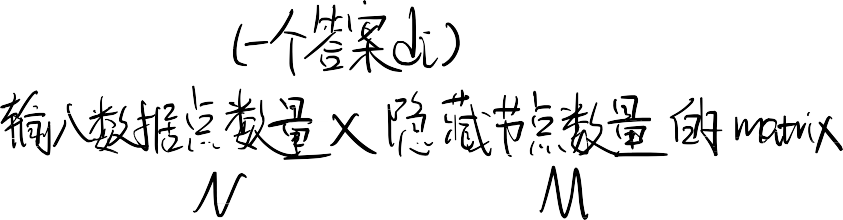 (一个答案di)
输入数据点数量 × 隐藏节点数量 的 matrix
N M